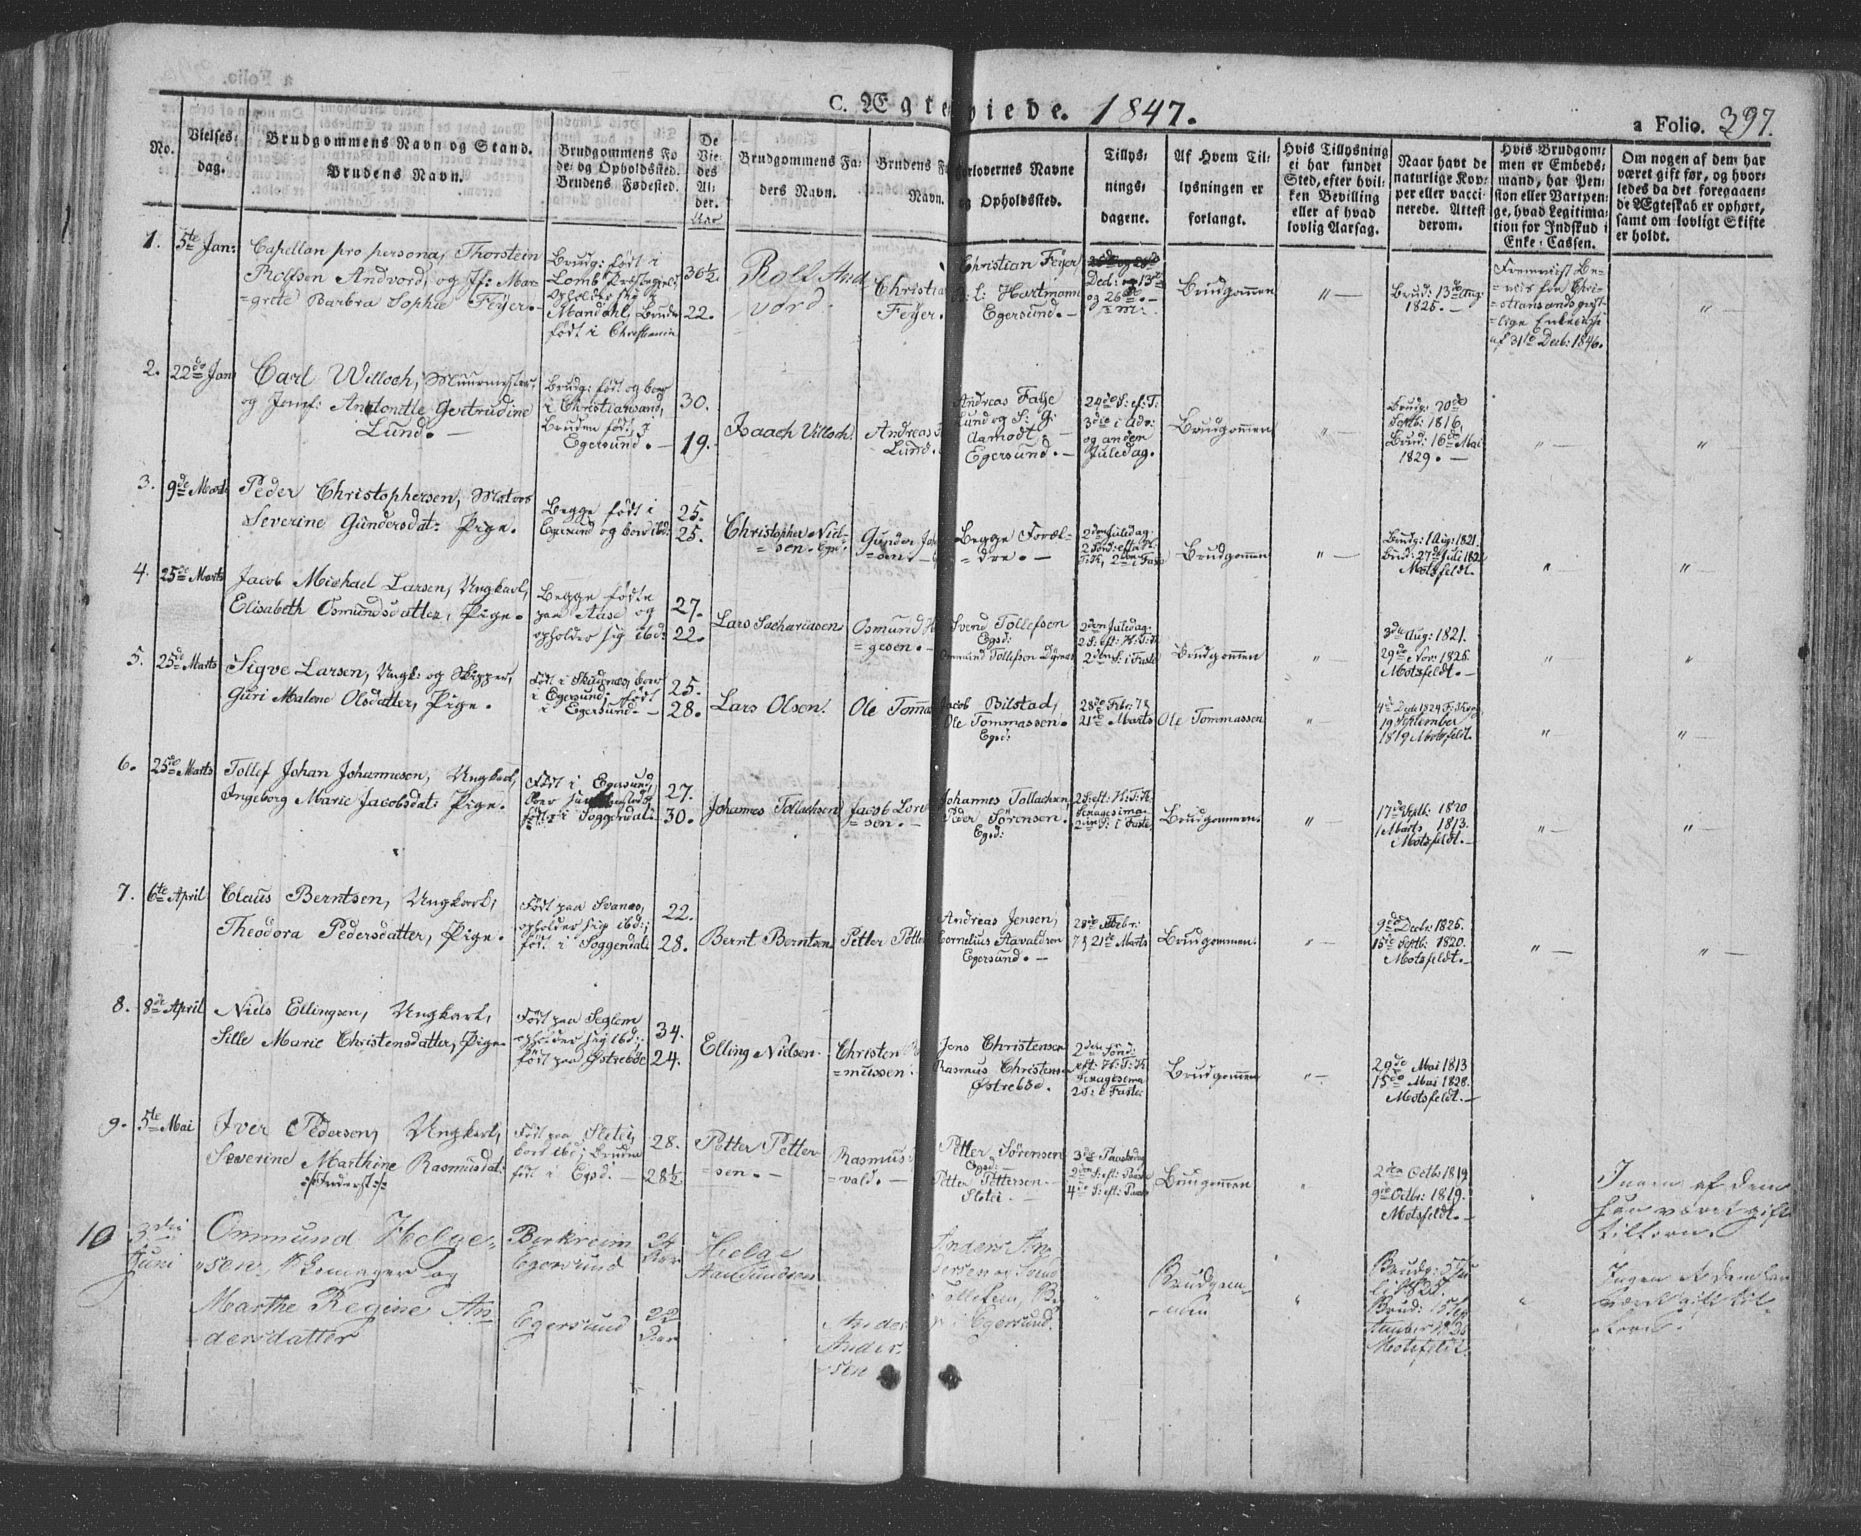 C. Ægteviede. 1847.
a Folio. 397.
No.
Vielses-
dag.
Brudgommens Navn og Stand.
Brudens Navn.
Brudgommens Fø-
de- og Opholdssted.
Brudens Fødested.
De
Vie-
des
Al-
der.
Aar
Brudgommens Fa-
ders Navn.
Brudens F
Navn.
Forlovernes Navne
og Opholdssted.
Tillys-
nings-
dagene.
Af Hvem Til-
lysningen er
forlangt.
Hvis Tillysning
ei har fundet
Sted, efter hvil-
ken Bevilling
eller af hvad
lovlig Aarsag.
Naar havt de
naturlige Kop-
per eller vacci-
nerede. Attest
derom.
Hvis Brudgom-
men er Embeds-
mand, har Pen-
sion eller Vartpen-
ge, hvad Legitima-
tion for Indskud i
Enke-Cassen.
Om nogen af dem har
været gift før, og hvor-
ledes da det foregaaen-
de Ægteskab er ophørt,
samt om lovligt Skifte
er holdt.
1.
5te Jan:
Capellan pro persona, Thorstein
Rolfsen Andvord, og Jf: Mar-
=grete Barbra Sophie Feyer.
Brudg: født i
Lomb Præstegield,
opholder sig i
Mandahl, Bruden
født i Christiania
36½.
22.
Rolf And
vord.
Christia
Feyer.
Christian Feyer
Hartmann
Egersund.
Dec: og 13de
og 26de
Brudgommen
" —
Brud: 13de Aug:
1825.
Fremvist Be-
=viis fra Chri-
=stiansands geist-
=lige Enkecasse
af 31te Decb: 1846.
" —
2.
22de Jan
Carl Willoch, Muurmester,
og Jomf: Antonette Gertrudine
Lund. —
Brudg: født og boer
i Christiansand,
Bruden født i
Egersund. —
30.
19.
Isaach Villoch.
Andreas F
Lund.
Andreas Faye
Lund og S: G:
Aamodt,
Egersund. —
24de S: ef: T:
3die i Adv:
og anden
Juledag.
Brudgommen
" —
Brudg: 20de
Septb: 1816,
Brud: 16de Mai
1829. —
" —
" —
3.
9de Marts
Peder Christophersen, Matros
Severine Gundersdat: Pige.
Begge født i
Egersund og boer ibd:
25.
25.
Christopher Niel-
=sen.
Gunder Joh
=sen. —
Begge Foræl-
=dre. —
2den Juledag
2 Sønd: efter H:
T: K, 2den i Faste
Brudgommen
" —
Brudg: 1 Aug: 1821.
Brud: 27de Juli 182
Motsfeldt.
" —
" —
4.
25de Marts
Jacob Michael Larsen, Ungkarl,
Elisabeth Osmundsdatter, Pige.
Begge fødte
paa Aase og
opholder sig ibd:
27.
22.
Lars Sachariasen
Osmund H
=gesen. —
Svend Tollefsen
Egsd:
Ommund Tollefsen
2den Juledag
2 S: eft: H: T: K
2den S: i Faste
Brudgommen
" —
3die Aug: 1821.
29de Nov: 1825.
Motsfeldt. —
" —
" —
5.
25de Marts
Sigve Larsen, Ungk: og Skipper,
Guri Malene Olsdatter, Pige.
Født i Skudnes, boer
i Egersund; født
i Egersund. —
25.
28.
Lars Olsen.
Ole Tomma
Jacob Bilstad,
Ole Tommassen.
Egsd:
28de Febr: 7 &
21de Marts
Ole Tommassen
" —
19 September
1819 Motsfeldt.
" —
" —
6.
25de Marts
Tollef Johan Johannesen, Ungkarl,
Ingeborg Marie Jacobsdat: Pige.
Født i Egersund,
boer
født i Soggendal.
27.
30.
Johannes Tollachsen
Jacob Lore
=sen. —
Johannes Tollachsen,
Peder Sörensen.
Egsd:
2 S: eft: H: T: K:
Sexagesima
2den S: i Faste,
Brudgommen.
" —
17de Septb: 1820
1 Marts 1813.
Motsfeldt. —
" —
" —
7.
6te April
Claus Berntsen, Ungkarl,
Theodora Pedersdatter, Pige.
Født paa Svanes,
opholder sig ibd:;
fød. i Soggendal.
22.
28.
Bernt Berntsen
Petter Petter
Andreas Jensen,
Cornelius Aavaldsen
Egersund. —
28de Febr:
7 & 21de Marts
Brudgommen.
" —
9de Decbr: 1825.
15de Septb: 1820.
Motsfeldt. —
" —
" —
8.
8de April
Niels Ellingsen, Ungkarl,
Sille Marie Christensdatter, Pige
Født paa Seglem
opholder sig ibd:;
født paa Østrebøe
34.
24.
Elling Nielsen.
Christen R
=mussen.
Jens Christensen
Rasmus Christens
Østrebøe.
2den Sønd:
eft: H: T: K
Sexagesima
2 S: i Faste
Brudgommen
" —
29de Mai 1813
15de Mai 1828.
Motsfeldt. —
9.
5te Mai
Iver Pedersen, Ungkarl,
Severine Marthine Rasmusdat:
Født paa Sletei,
boer ibd; Bruden
fød. i Egsd. —
28.
28½
Petter Petter
=sen. —
Rasmus
=vald. —
Petter Sørensen
Egsd: —
Petter Pettersen
Sletei. —
3die Paaskedag
2den S: eft: Paaske
4de S: eft: Paaske
Brudgommen
"
2den Octb: 1819
9de Octbr: 1819.
Motsfeldt. —
"
Ingen af dem
har været gift
tilforn.
10
3die
Juni
Ommund Helge-
=sen, Skomager og
Marthe Regine An-
=dersdatter
Berkreim
Egersund
Egersund
24
Aar
22
Aar
Helge
Aamundsen
Ander
Ander-
sen
Anders An
dersen og Svend
Tollefsen, B
i Egersund.
"
Brudgom-
men
"
Brudg: 5 Ju
li 1825.
Brud: 15 Sep
tember 1825
Motsfeldt.
"
Ingen af dem har
været gift til-
forn.